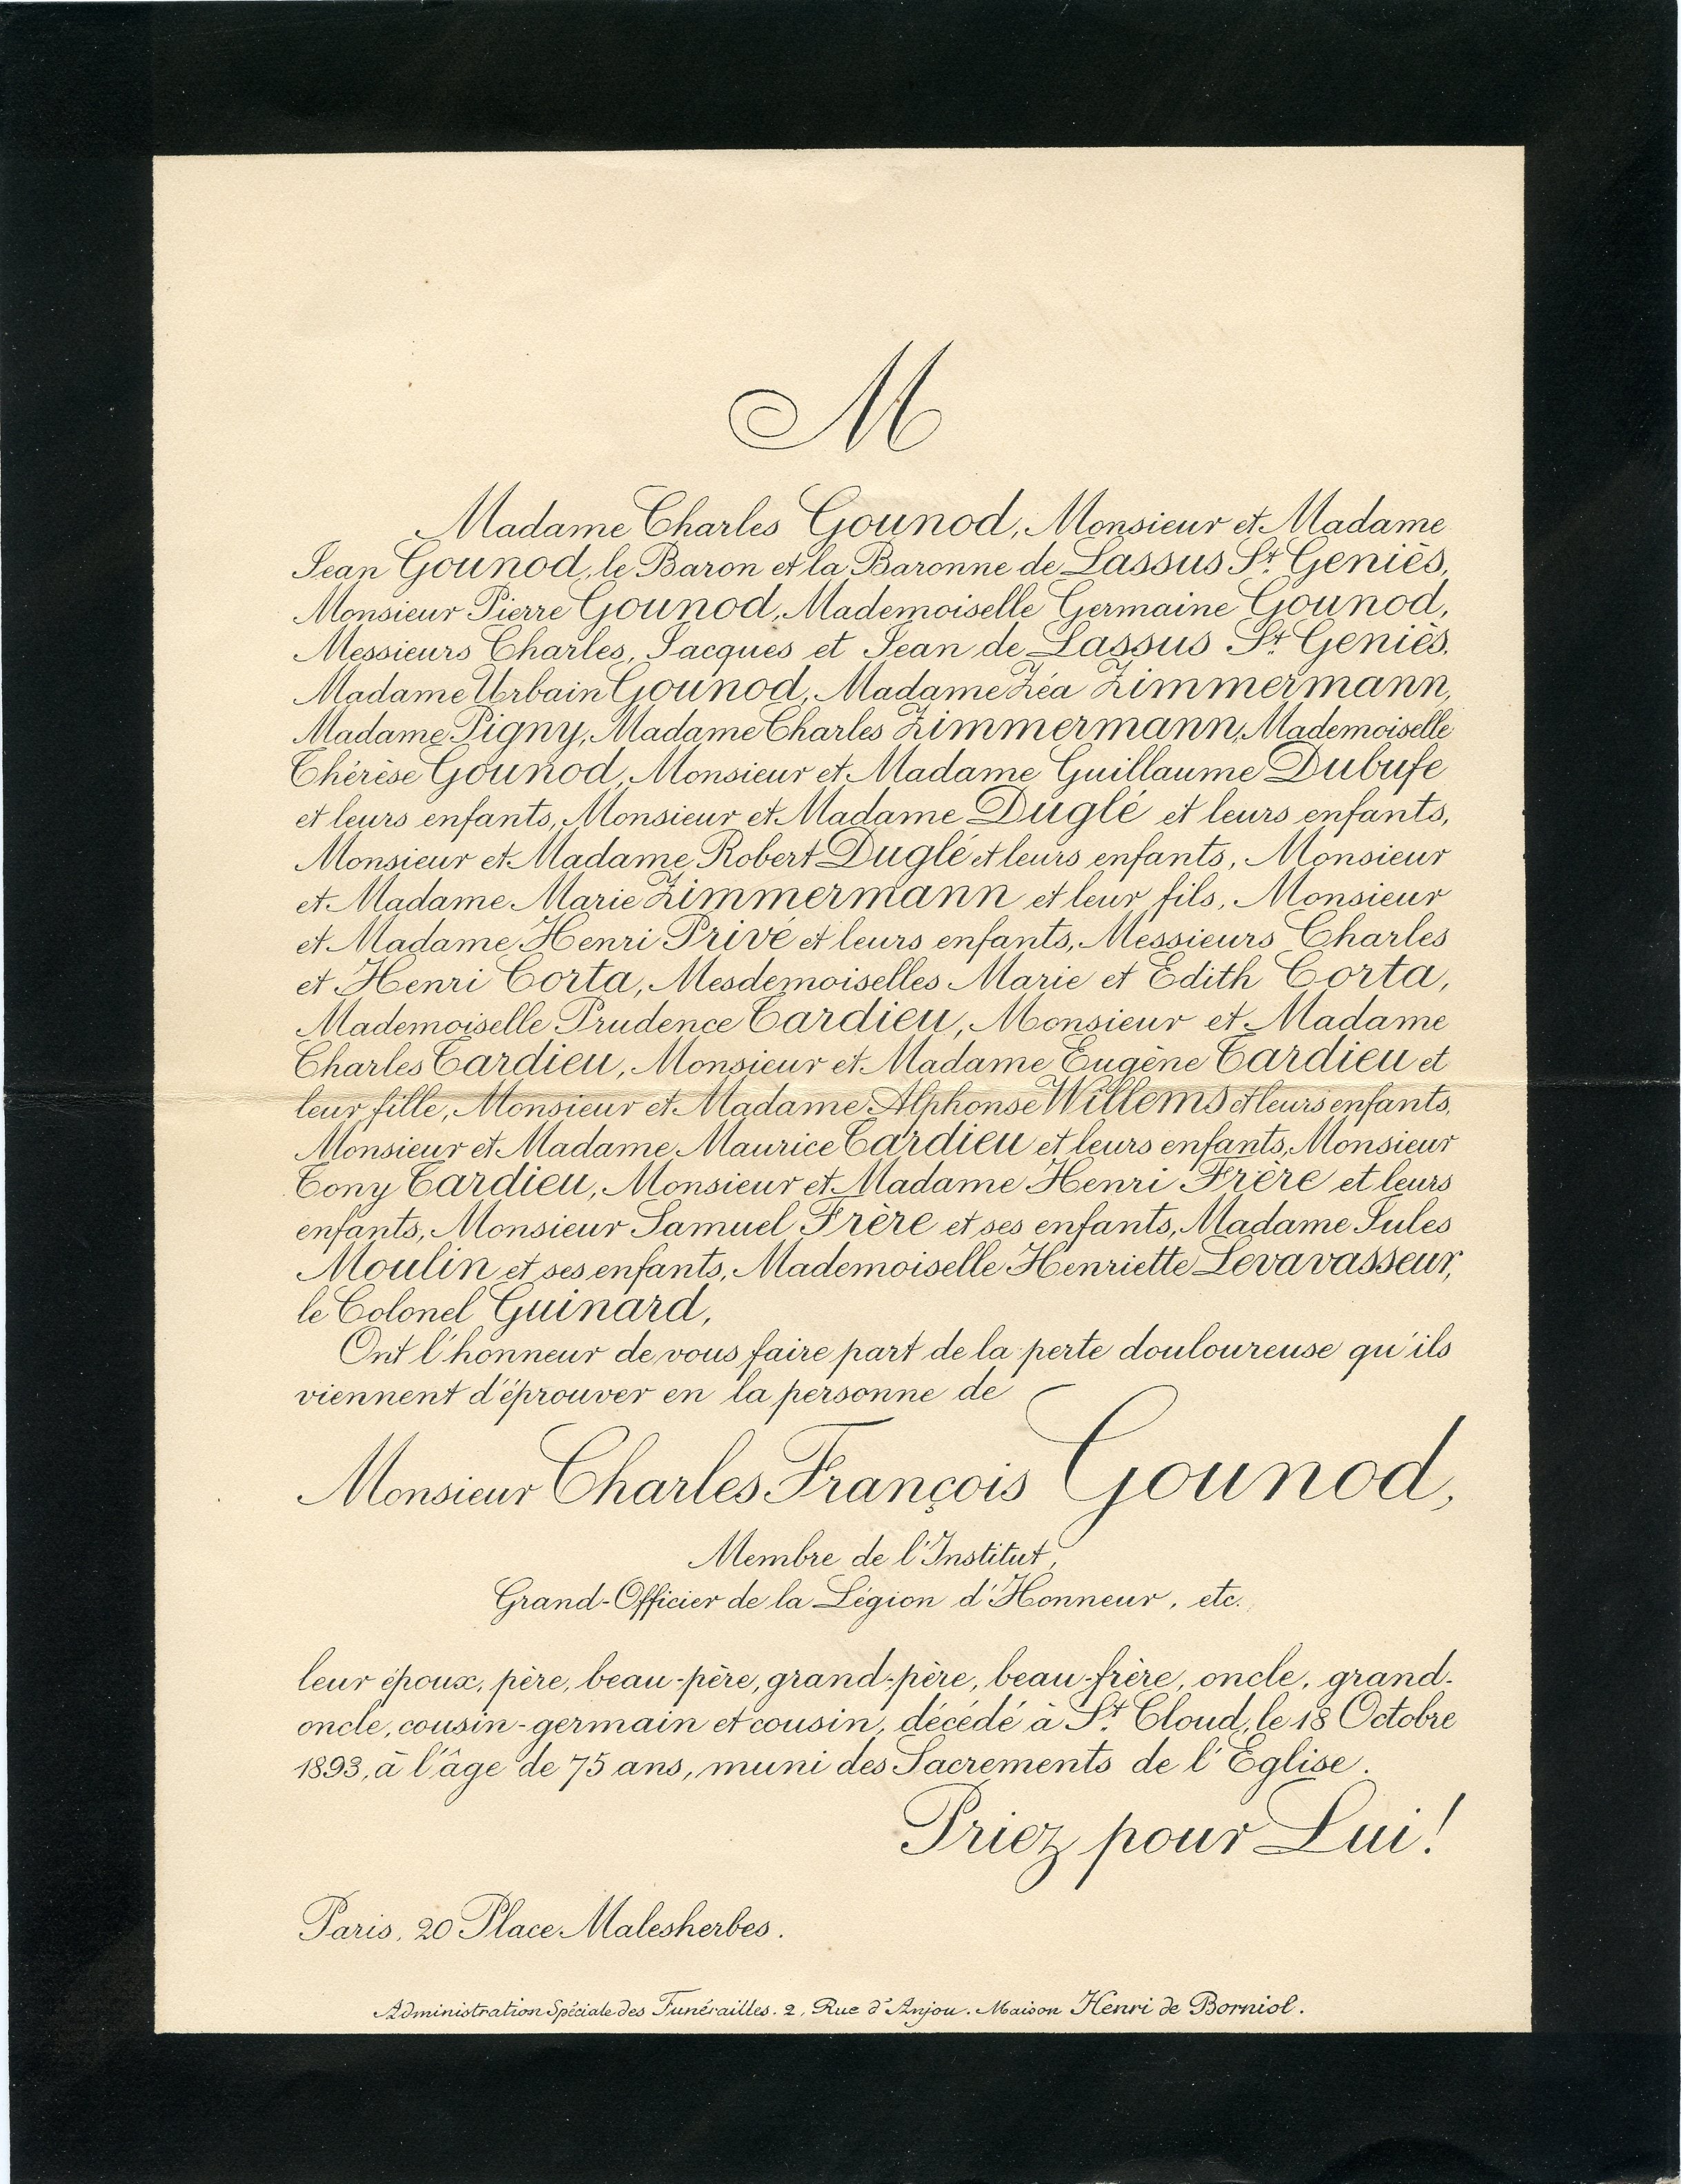 M
Madame Charles Gounod, Monsieur et Madame
Jean Gounod, le Baron et la Baronne de Lassus St. Geniès,
Monsieur Pierre Gounod, Mademoiselle Germaine Gounod,
Messieurs Charles, Jacques et Jean de Lassus St. Geniès.
Madame Urbain Gounod, Madame Zéa Zimmermann,
Madame Pigny, Madame Charles Zimmermann, Mademoiselle
Thérèse Gounod, Monsieur et Madame Guillaume Dubufe
et leurs enfants, Monsieur et Madame Duglé et leurs enfants,
Monsieur et Madame Robert Duglé et leurs enfants, Monsieur
et Madame Marie Zimmermann et leur fils, Monsieur
et Madame Henri Privé et leurs enfants, Messieurs Charles
et Henri Corta, Mesdemoiselles Marie et Edith Corta,
Mademoiselle Prudence Tardieu, Monsieur et Madame
Charles Tardieu, Monsieur et Madame Eugène Tardieu et
leur fille, Monsieur et Madame Alphonse Willems et leurs enfants,
Monsieur et Madame Maurice Tardieu et leurs enfants, Monsieur
Tony Tardieu, Monsieur et Madame Henri Frère et leurs
enfants, Monsieur Samuel Frère et ses enfants, Madame Jules
Moulin et ses enfants, Mademoiselle Henriette Levavasseur,
le Colonel Guinard,
Ont l'honneur de vous faire part de la perte douloureuse qu'ils
viennent d'éprouver en la personne de
Monsieur Charles François Gounod,
Membre de l'Institut,
Grand-Officier de la Légion d'Honneur, etc.
leur époux, père, beau-père, grand-père, beau-frère, oncle, grand-
oncle, cousin-germain et cousin, décédé à St. Cloud, le 18 Octobre
1893, à l'âge de 75 ans, muni des Sacrements de l'Eglise.
Priez pour Lui!
Paris, 20 Place Malesherbes.
Administration Spéciale des Funérailles. 2, Rue d'Anjou. Maison Henri de Borniol.